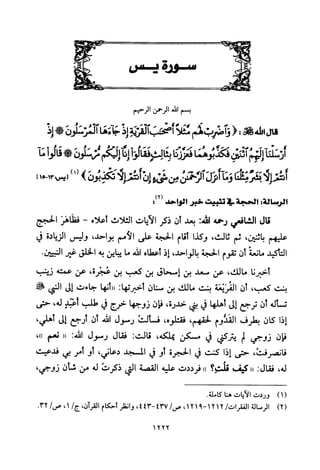 سورة يس
بسم الله الرحمن الرحيم
قال الله ﷻ: ﴿ وَاضْرِبْ لَهُم مَّثَلًا أَصْحَابَ الْقَرْيَةِ إِذْ جَاءَهَا الْمُرْسَلُونَ ۞ إِذْ
أَرْسَلْنَا إِلَيْهِمُ اثْنَيْنِ فَكَذَّبُوهُمَا فَعَزَّزْنَا بِثَالِثٍ فَقَالُوا إِنَّا إِلَيْكُم مُّرْسَلُونَ ۞ قَالُوا مَا
أَنتُمْ إِلَّا بَشَرٌ مِّثْلُنَا وَمَا أَنزَلَ الرَّحْمَٰنُ مِن شَيْءٍ إِنْ أَنتُمْ إِلَّا تَكْذِبُونَ ﴾ (١) [يس:١٣-١٥]
الرسالة: الحجة في تثبيت خبر الواحد (٢):
قال الشافعي رحمه الله: بعد أن ذكر الآيات الثلاث أعلاه - فظاهَرَ الحجج
عليهم باثنين، ثم ثالث، وكذا أقام الحجة على الأمم بواحد، وليس الزيادة في
التأكيد مانعةً أن تقوم الحجة بالواحد، إذ أعطاه الله ما يباين به الخلق غير النبيين.
أخبرنا مالك، عن سعد بن إسحاق بن كعب بن عُجْرة، عن عمته زينب
بنت كعب، أن الفُرَيْعَة بنت مالك بن سنان أخبرتها: «أنها جاءت إلى النبي ﷺ
تسأله أن ترجع إلى أهلها في بني خدرة، فإن زوجها خرج في طلب أعْبُدٍ له، حتى
إذا كان بطرف القَدُّوم لحقهم، فقتلوه، فسألتُ رسول الله أن أرجع إلى أهلي،
فإن زوجي لم يتركني في مسكن يملكه، قالت: فقال رسول الله: «نعم»،
فانصرفتُ، حتى إذا كنت في الحجرة أو في المسجد دعاني، أو أمر بي فدعيت
له، فقال: «كيف قلتِ؟» فرددت عليه القصة التي ذكرتُ له من شأن زوجي،
(١) وردت الآيات هنا كاملة.
(٢) الرسالة الفقرات/ ١٢١٢-١٢١٩، ص/ ٤٣٧-٤٤٣، وانظر أحكام القرآن، ج/ ١، ص/ ٣٢.
١٢٢٢